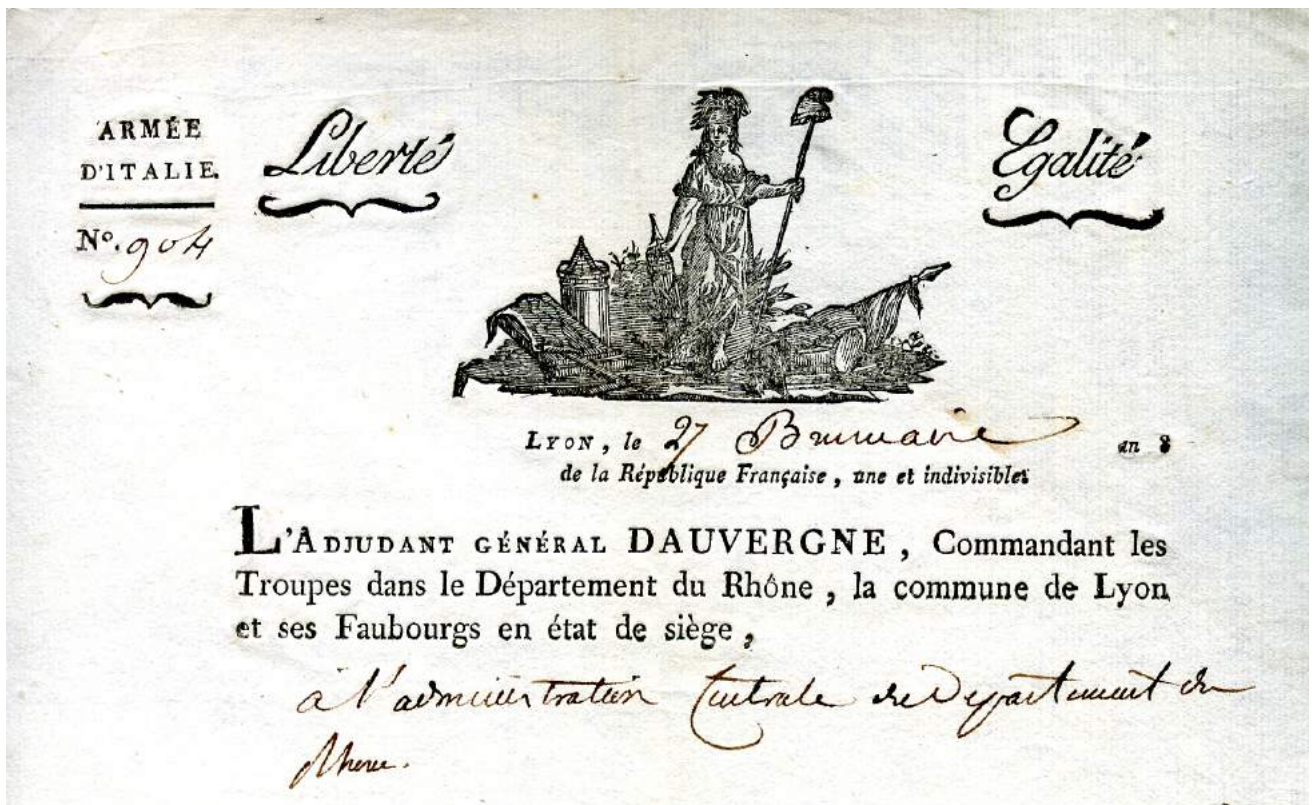 ARMÉE
D'ITALIE.
N°. 904
Liberté
Egalité
LYON, le 27 Brumaire an 8
de la République Française, une et indivisible.
L'ADJUDANT GÉNÉRAL DAUVERGNE, Commandant les
Troupes dans le Département du Rhône, la commune de Lyon
et ses Faubourgs en état de siège,
à l'administration Centrale du Departement du
Rhone.